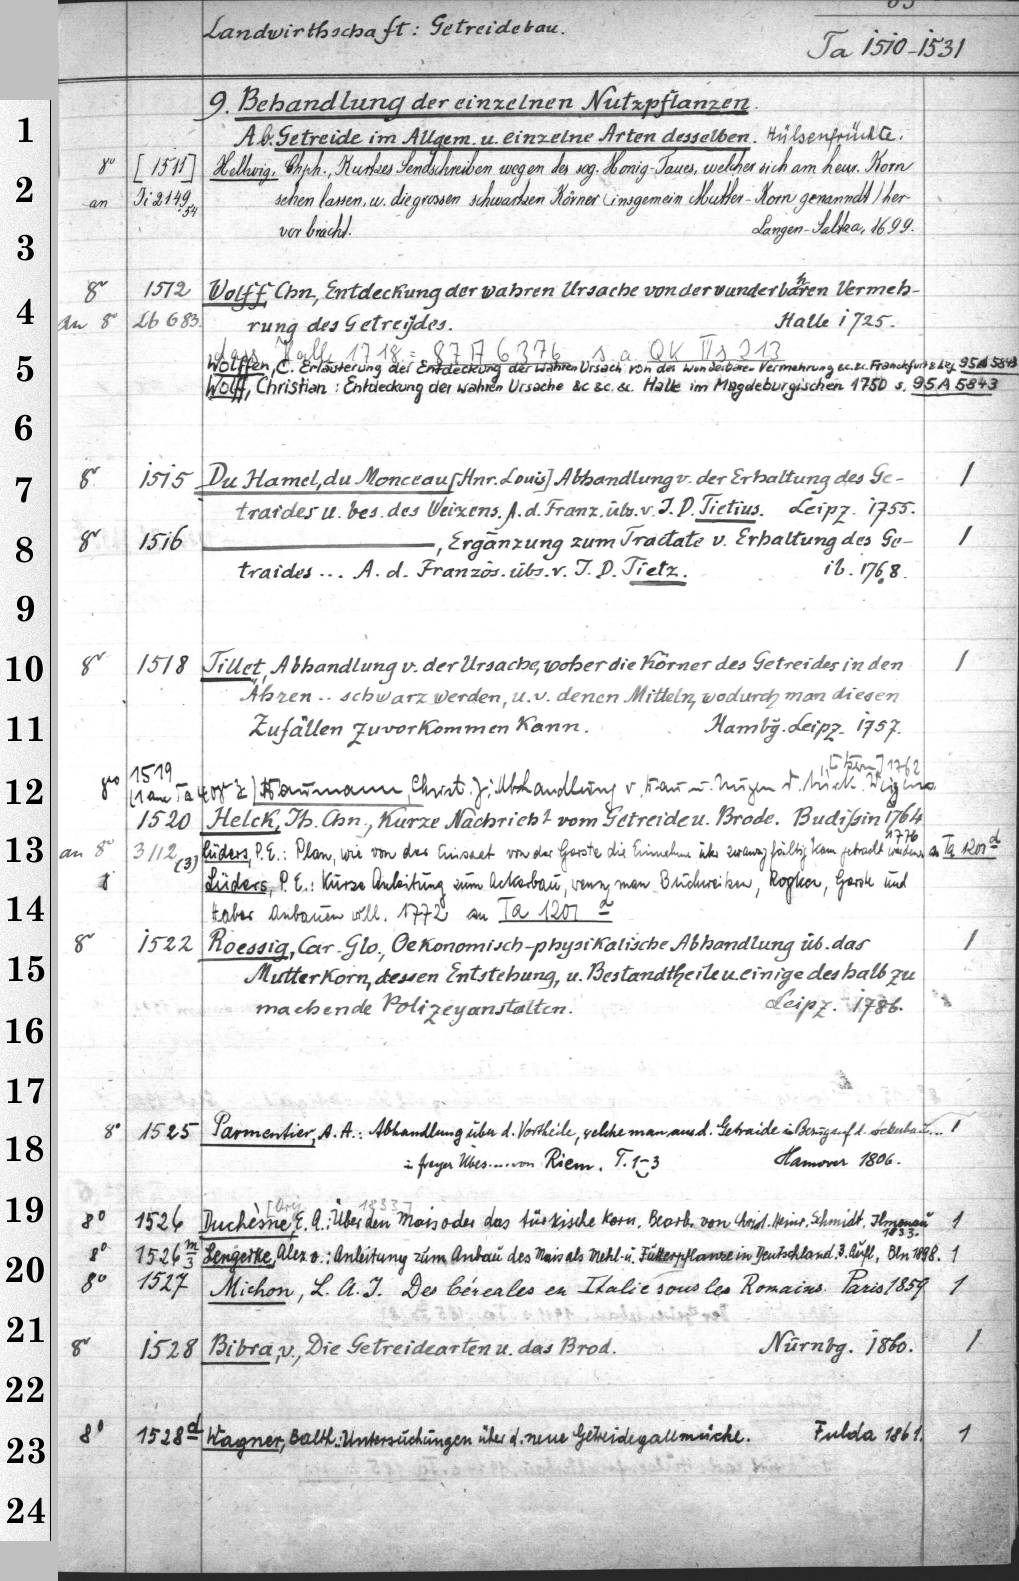 Landwirthschaft: Getreidebau.
Ta 1510-1531
9. Behandlung der einzelnen Nutzpflanzen.
1
A.b. Getreide im Allgem. u. einzelne Arten desselben. Hülsenfrüchte.
8° [1511] Hellwig, Chph., Kurtzes Sendschreiben wegen des sog. Honig-Taues, welcher sich am heur. Korn
2
an Ji 2149,54 sehen lassen, u. die grossen schwartzen Körner (insgemein Mutter-Korn genanndt) her-
vor bracht. Langen-Saltza, 1699.
3
8° 1512 Wolff, Chn, Entdeckung der wahren Ursache von der wunderbahren Vermeh-
4
an 8° Lb 683. rung des Getreydes. Halle 1725.
dass. Halle 1718 = 87 A 6376 s.a. QK II s 213
5
Wolffen, C. Erläuterung der Entdeckung der wahren Ursach von der wunderbaren Vermehrung &c.&c. Franckfurt & Lpz 95 A 5843
Wolff, Christian: Entdeckung der wahren Ursache &c &c. &. Halle im Magdeburgischen 1750 s. 95 A 5843
6
8° 1515 Du Hamel, du Monceau [Hnr. Louis] Abhandlung v. der Erhaltung des Ge- 1
7
traides u. bes. des Weizens. A. d. Franz. übs. v. J. D. Tietius. Leipz. 1755.
8° 1516 ————, Ergänzung zum Tractate v. Erhaltung des Ge- 1
8
traides ... A. d. Französ. übs. v. J. D. Tietz. ib. 1768.
9
8° 1518 Tillet, Abhandlung v. der Ursache, woher die Körner des Getreides in den 1
10
Ähren .. schwarz werden, u. v. denen Mitteln, wodurch man diesen
11
Zufällen zuvorkommen kann. Hambg. Leipz. 1757.
1519 1762
12
8vo Haumann, Christ. J.: Abhandlung v.
1520 Helck, Th. Chn., Kurze Nachricht vom Getreide u. Brode. Budissin 1764
1776
13
an 8° 3112 (3) Lüders, P. E.: Plan, wie von der Einsaat von der Gerste die Einnahme über zwanzigfältig kann gebracht werden an Ta 1201 d
Lüders, P. E.: Kurze Anleitung zum Ackerbau, wenn man Buchweitzen, Rogken, Gerste und
14
Haber anbauen will. 1772 an Ta 1201 d
8° 1522 Roessig, Car. Glo., Oekonomisch-physikalische Abhandlung üb. das 1
15
Mutterkorn, dessen Entstehung, u. Bestandtheile u. einige deshalb zu
machende Polizeyanstalten. Leipz. 1786.
16
17
8° 1525 Parmentier, A. A.: Abhandlung über d. Vortheile, welche man aus d. Getraide in Bezug auf d. Ackerbau... 1
18
in freyer Übers.... von Riem. T. 1-3 Hannover 1806.
[Orig. 1833]
19
8° 1526 Duchèsne, E. A.: Über den Mais oder das türkische Korn. Bearb. von Christ. Heinr. Schmidt, Ilmenau 1833. 1
8° 1526 m/3 Lengerke, Alex v.: Anleitung zum Anbau des Mais als Mehl- u. Futterpflanze in Deutschland. 3. Aufl. Bln 1898. 1
20
8° 1527 Michon, L. A. J. Des Céreales en Italie sous les Romains. Paris 1859 1
21
8° 1528 Bibra, v., Die Getreidearten u. das Brod. Nürnbg. 1860. 1
22
8° 1528 d Wagner, Balth.: Untersuchungen über d. neue Getreidegallmücke. Fulda 1861. 1
23
24